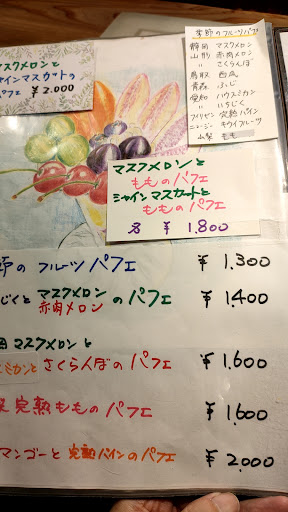 マスクメロンと
シャインマスカットの
パフェ ¥2.000
季節のフルーツパフェ
静岡 マスクメロン
山形 赤肉メロン
〃 さくらんぼ
鳥取 白瓜
青森 ふじ
愛知 ハウスミカン
〃 いちじく
フィリピン 完熟パイン
ニュージー キウイフルーツ
山梨 もも
マスクメロンと
もものパフェ
シャインマスカットと
もものパフェ
各 ¥1.800
節の フルーツパフェ ¥1.300
じくと マスクメロン
赤肉メロン のパフェ ¥1.400
マスクメロンと
ミカンと さくらんぼのパフェ ¥1.600
完熟もものパフェ ¥1.600
マンゴーと 完熟パインのパフェ ¥2.000